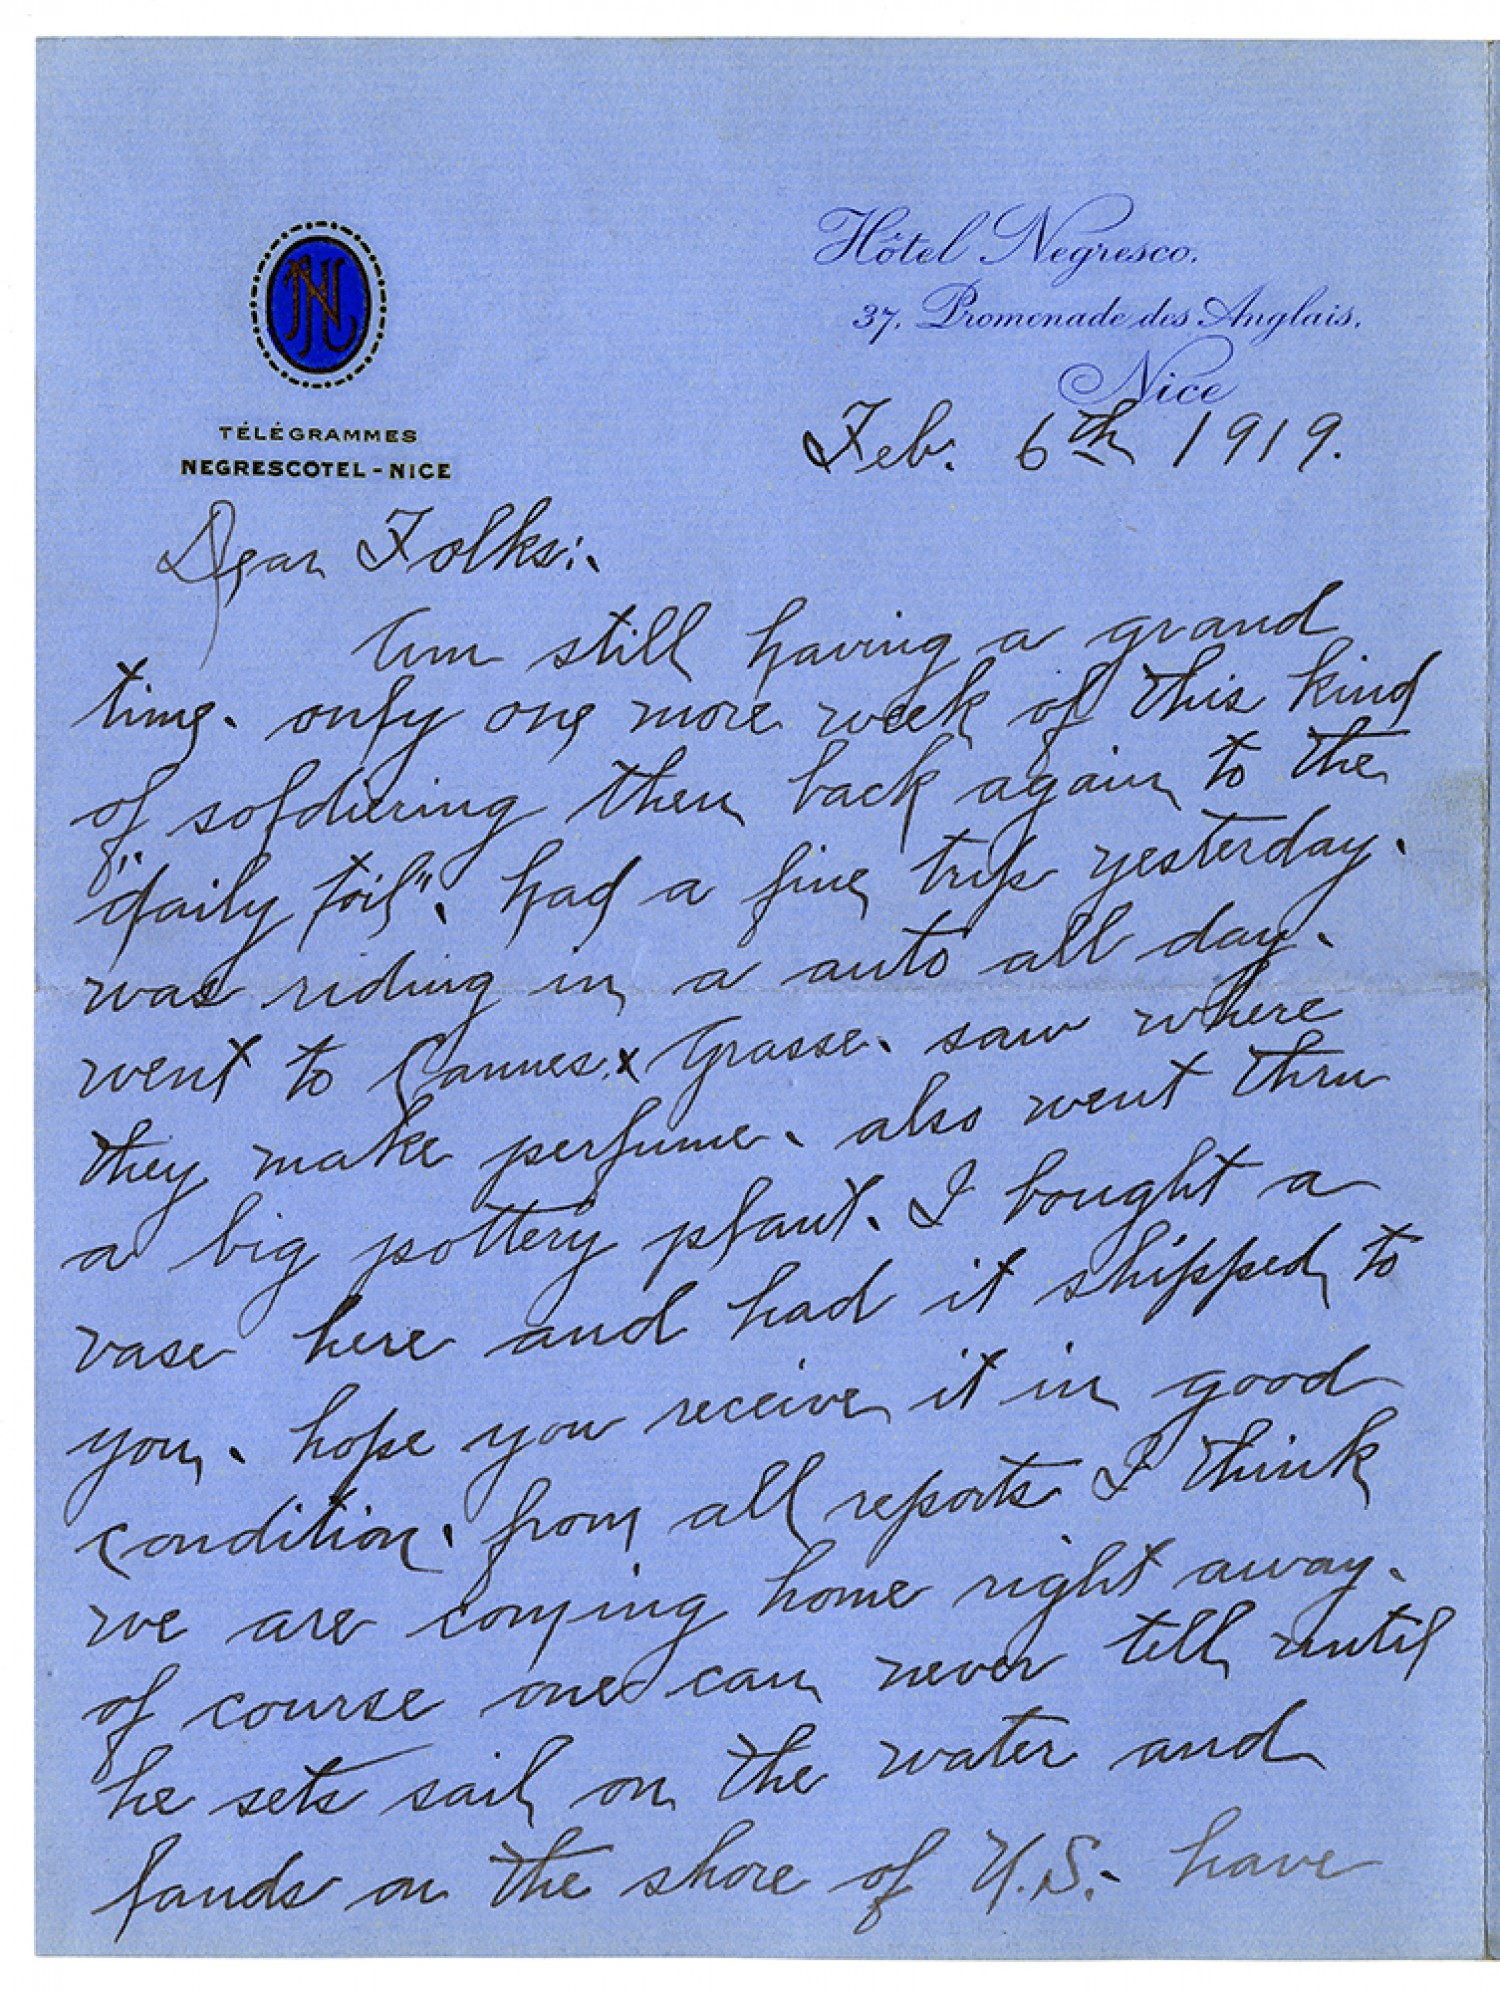 Hôtel Negresco.
37, Promenade des Anglais.
Nice
HN
TÉLÉGRAMMES
NEGRESCOTEL - NICE
Feb. 6th 1919.
Dear Folks:.
Am still having a grand
time. only one more week of this kind
of soldiering then back again to the
"daily toil". had a fine trip yesterday.
was riding in a auto all day.
went to Cannes. x Grasse. saw where
they make perfume. also went thru
a big pottery plant. I bought a
vase here and had it shipped to
you. hope you receive it in good
condition. from all reports I think
we are coming home right away.
of course one can never tell until
he sets sail on the water and
lands on the shore of U.S. have